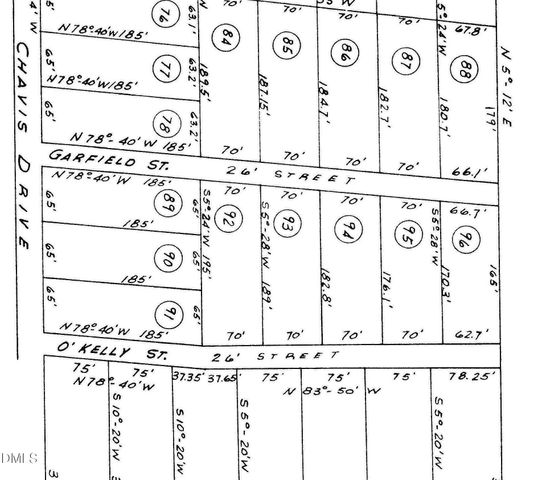 4' W
CHAVIS DRIVE
65'
N 78°-40'W 185'
76
63.1'
65'
N 78°-40'W 185'
77
63.2'
65'
N 78°-40'W 185'
78
63.2'
70'
84
189.5'
70'
70'
85
187.15'
70'
70'
86
184.7'
70'
70'
87
182.7'
70'
5°-24'W
67.8'
88
180.7'
179'
66.1'
N 5°-12' E
GARFIELD ST. 26' STREET
N 78°40'W 185'
65'
89
65'
185'
65'
90
65'
185'
65'
91
65'
N 78°40'W 185'
S 5°-24'W 195'
70'
92
70'
S 5°-28'W 189'
70'
93
70'
70'
94
182.8'
70'
70'
95
176.1'
70'
S 5°-28'W
170.3'
66.7'
96
165'
62.7'
O'KELLY ST. 26' STREET
75' 75' 37.35' 37.65' 75' 75' 75' 78.25'
N 78°-40'W N 83°-50' W
S 10°-20'W
S 10°-20'W
S 5°-20'W
S 5°-20'W
DMLS